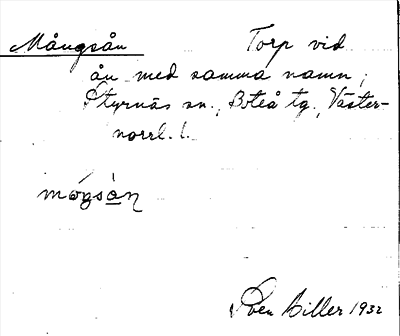 Mångsån Torp vid
ån med samma namn,
Styrnäs sn., Boteå tg., Väster-
norrl. l.
Sven Biller 1932